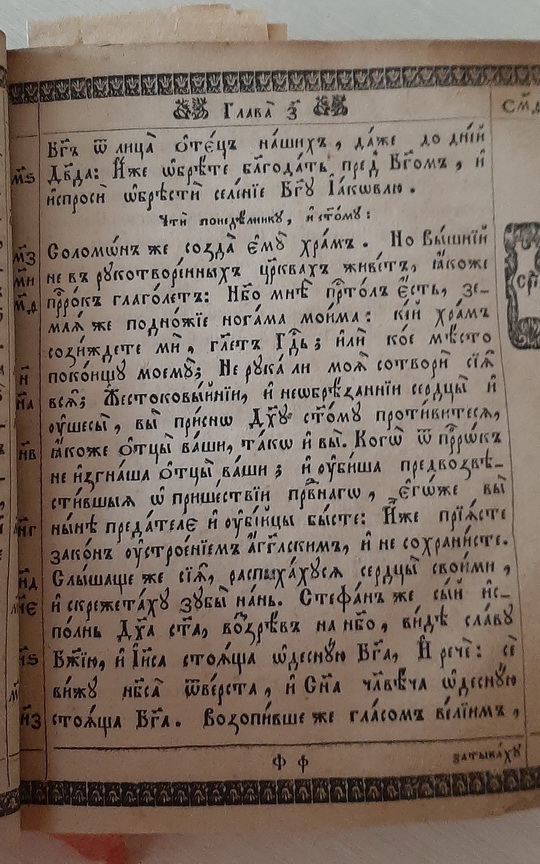 Глава̀ з҃
Бг҃ъ ѿ лица̀ ѻ҆те́цъ на́шихъ, да́же до дні́й
м҃ѕ Дв҃да: И҆́же ѡ҆брѣ́те бл҃года́ть пред̾ Бг҃омъ, и҆
и҆спросѝ ѡ҆брѣстѝ селе́нїе Бг҃ꙋ І҆а́кѡвлю.
Чтѝ понедѣ́лникꙋ, и҆ ст҃о́мꙋ:
м҃з Соломѡ́нъ же созда̀ є҆мꙋ̀ хра́мъ. Но Вы́шнїй
м҃и не въ рꙋкотворе́нныхъ цр҃квахъ живе́тъ, ꙗ҆́коже
м҃ѳ прⷪ҇ро́къ глаго́летъ: Нб҃о мнѣ̀ прⷭ҇то́лъ є҆́сть, зе-
млѧ́ же подно́жїе нога́ма мои́ма: кі́й хра́мъ
сози́ждете мѝ, гл҃етъ Гдⷭ҇ь; и҆лѝ ко́е мѣ́сто
н҃ поко́ищꙋ моемꙋ̀; Не рꙋка́ ли моѧ̀ сотворѝ сїѧ̑
н҃а всѧ̑; Жестоковы́йнїи, и҆ неѡбрѣ́заннїи сердцы̀ и҆
ᲂу҆шесы̀, вы̀ при́снѡ Дх҃ꙋ ст҃о́мꙋ проти́витесѧ,
н҃в ꙗ҆́коже ѻ҆тцы̀ ва́ши, та́кѡ и҆ вы̀. Кого̀ ѿ прⷪ҇рѡ́къ
не и҆згна́ша ѻ҆тцы̀ ва́ши; и҆ ᲂу҆би́ша предвозвѣ-
сти́вшыѧ ѡ҆ прише́ствїи прⷣвнагѡ, є҆гѡ́же вы̀
н҃г ны́нѣ преда́телє и҆ ᲂу҆бі́йцы бы́сте: И҆̀же прїѧ́сте
зако́нъ ᲂу҆строе́нїемъ а҆́гг҃лскимъ, и҆ не сохрани́сте.
н҃д Слы́шаще же сїѧ̑, распыха́хꙋсѧ сердцы̀ свои́ми,
н҃є и҆ скрежета́хꙋ зꙋбы̀ на́нь. Стефа́нъ же сы́й и҆с-
по́лнь Дх҃а ст҃а, возрѣ́въ на нб҃о, ви́дѣ сла́вꙋ
н҃ѕ Бж҃їю, и҆ І҆и҃са стоѧ́ща ѡ҆деснꙋ́ю Бг҃а, И҆ речѐ: сѐ
ви́жꙋ нб҃са̀ ѿве́рста, и҆ Сн҃а чл҃вѣ́ча ѡ҆деснꙋ́ю
н҃з стоѧ́ща Бг҃а. Возопи́вше же гла́сомъ ве́лїимъ,
Ф ф
затыка́хꙋ